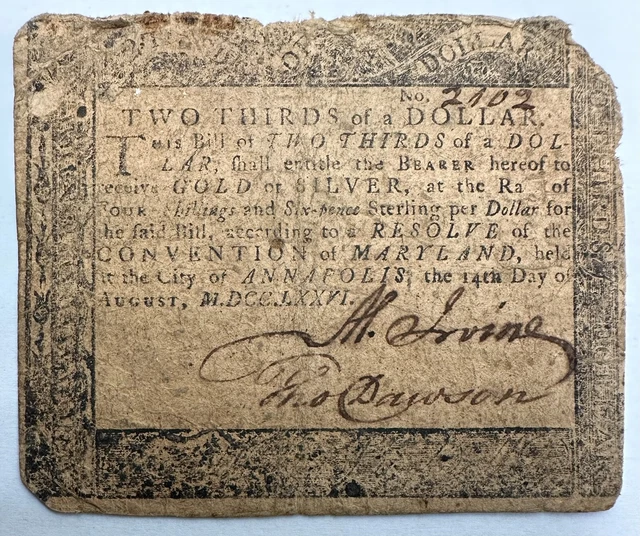 OF A DOLLAR
No. 2102
TWO THIRDS of a DOLLAR.
This Bill of TWO THIRDS of a DOL-
LAR, shall entitle the BEARER hereof to
receive GOLD or SILVER, at the Ra of
FOUR Shillings and Six-pence Sterling per Dollar for
the said Bill, according to a RESOLVE of the
CONVENTION of MARYLAND, held
at the City of ANNAPOLIS, the 14th Day of
AUGUST, M.DCC.LXXVI.
M. Irvine
Tho Dawson